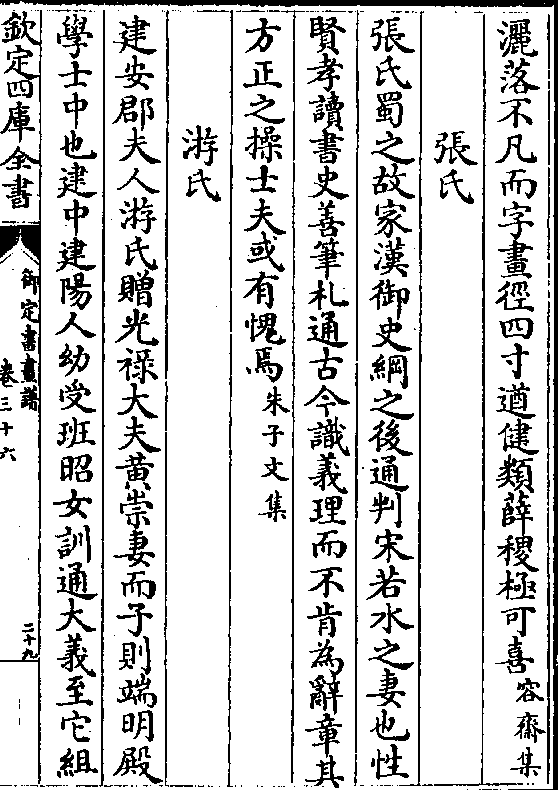 灑落不凡而字畫徑四寸遒健類薛稷極可喜容齋集
張氏
張氏蜀之故家漢御史綱之後通判宋若水之妻也性
賢孝讀書史善筆札通古今識義理而不肯為辭章其
方正之操士夫或有愧焉朱子文集
游氏
建安郡夫人游氏贈光祿大夫黃崇妻而子則端明殿
學士中也建中建陽人幼受班昭女訓通大義至它組
欽定四庫全書
御定書畫譜
卷三十六
二十九